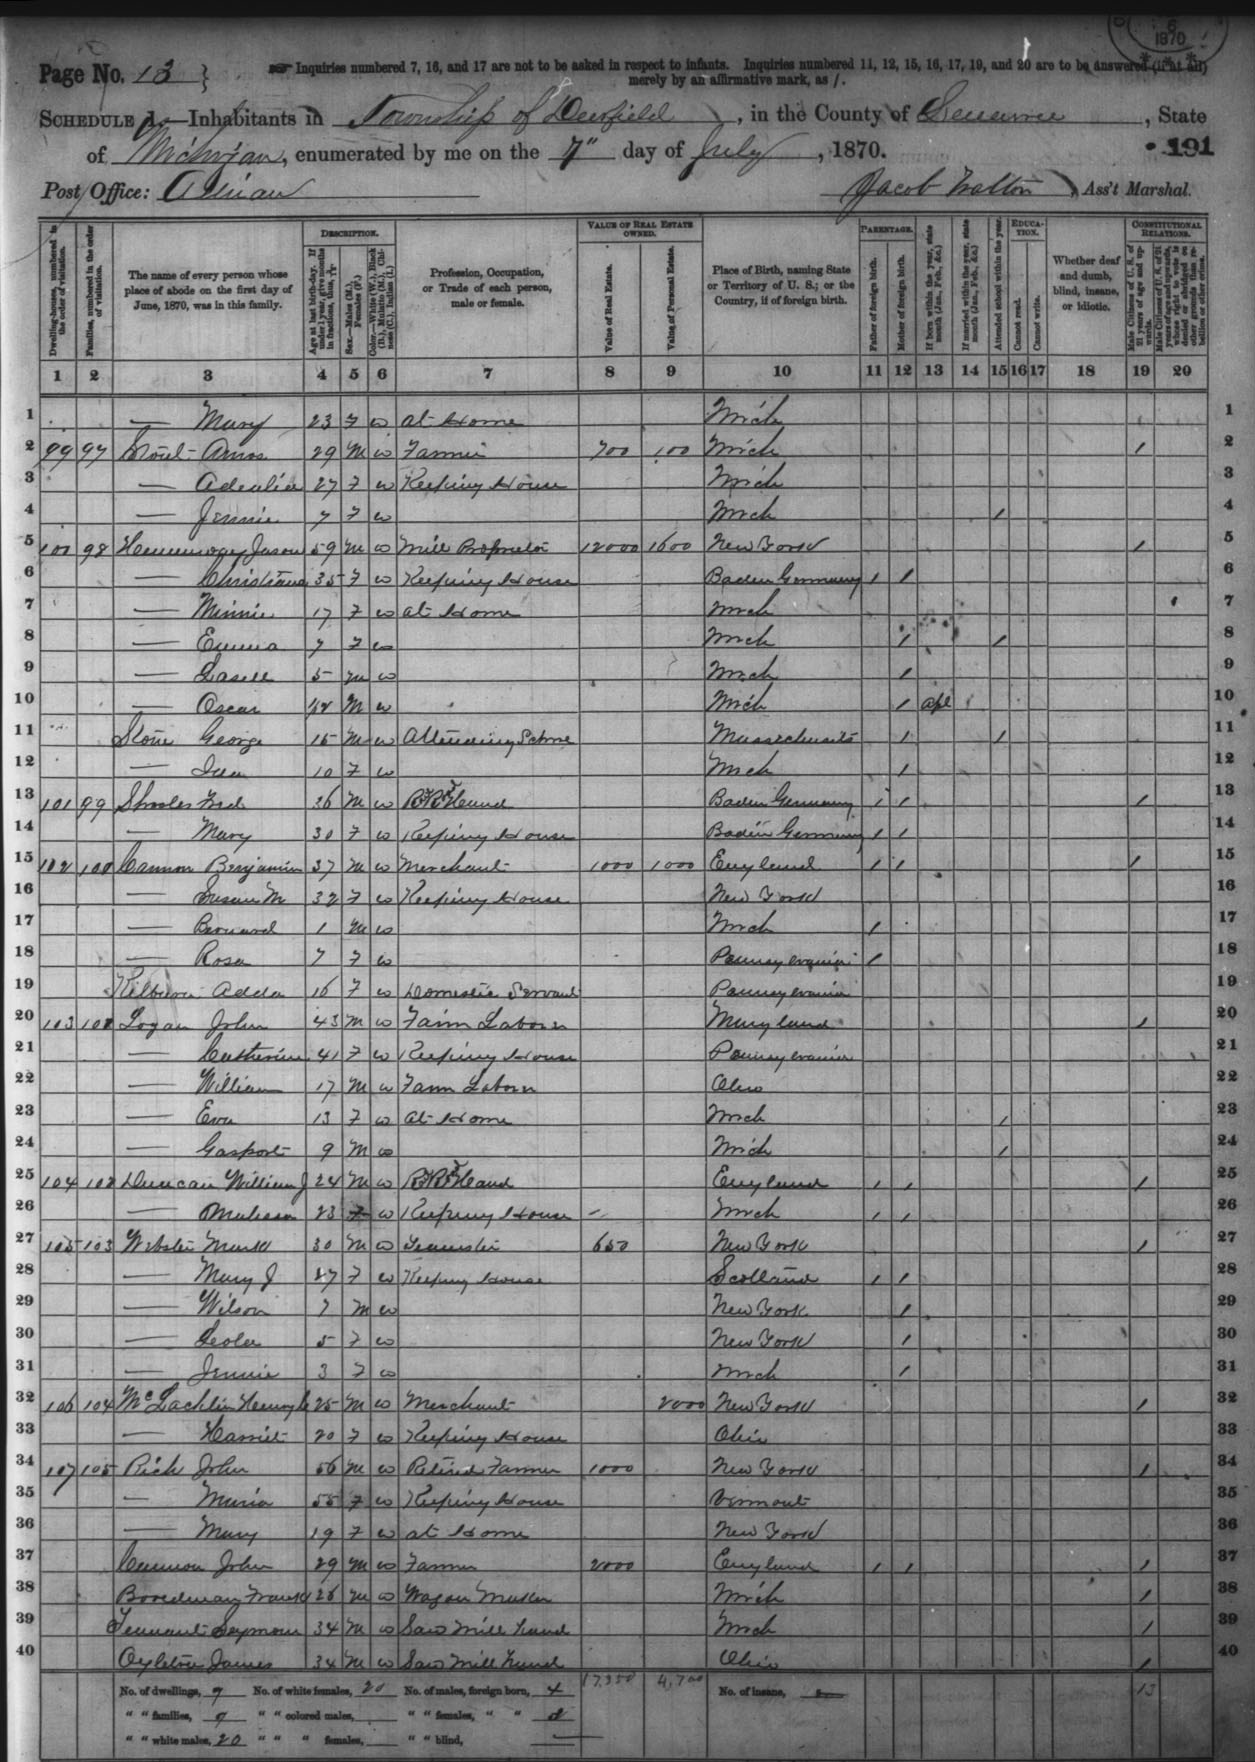 6
1870
Page No. 13 }
☞ Inquiries numbered 7, 16, and 17 are not to be asked in respect to infants. Inquiries numbered 11, 12, 15, 16, 17, 19, and 20 are to be answered (if at all)
merely by an affirmative mark, as /.
SCHEDULE 1.—Inhabitants in Township of Deerfield, in the County of Lenawee, State
of Michigan, enumerated by me on the 7" day of July, 1870.
191
Post Office: Adrian
Jacob, Ass't Marshal.
Dwelling-houses, numbered in the order of visitation.
Families, numbered in the order of visitation.
The name of every person whose place of abode on the first day of June, 1870, was in this family.
DESCRIPTION.
Age at last birth-day. If under 1 year, give months in fractions, thus, 3/12
Sex.—Males (M.), Females (F.)
Color.—White (W.), Black (B.), Mulatto (M.), Chinese (C.), Indian (I.)
Profession, Occupation, or Trade of each person, male or female.
VALUE OF REAL ESTATE OWNED.
Value of Real Estate.
Value of Personal Estate.
Place of Birth, naming State or Territory of U. S.; or the Country, if of foreign birth.
PARENTAGE.
Father of foreign birth.
Mother of foreign birth.
If born within the year, state month (Jan., Feb., &c.)
If married within the year, state month (Jan., Feb., &c.)
Attended school within the year.
EDUCATION.
Cannot read.
Cannot write.
Whether deaf and dumb, blind, insane, or idiotic.
CONSTITUTIONAL RELATIONS.
Male Citizens of U. S. of 21 years of age and upwards.
Male Citizens of U. S. of 21 years of age and upwards, whose right to vote is denied or abridged on other grounds than rebellion or other crime.
1 2 3 4 5 6 7 8 9 10 11 12 13 14 15 16 17 18 19 20
1 — Mary 23 F W At Home Mich 1
2 99 97 Amos 29 M W Farmer 700 100 Mich / 2
3 — Adealia 27 F W Keeping House Mich 3
4 — Jennie 7 F W Mich / 4
5 100 98 Hemmingway Jason 59 M W Mill Proprietor 12000 1600 New York / 5
6 — Christiana 35 F W Keeping House Baden Germany / / 6
7 — Minnie 17 F W At Home Mich 7
8 — Emma 7 F W Mich / / 8
9 — 5 M W Mich / 9
10 — Oscar M W Mich / Apl 10
11 Stone George 15 M W Attending School Massachusetts / / 11
12 — 10 F W Mich / 12
13 101 99 Fred 26 M W R R Hand Baden Germany / / / 13
14 — Mary 30 F W Keeping House Baden Germany / / 14
15 102 100 Cannon Benjamin 37 M W Merchant 1000 1000 England / / / 15
16 — Susan M 32 F W Keeping House New York 16
17 — Bernard 1 M W Mich / 17
18 — Rosa 7 F W Pennsylvania / 18
19 Kilburn Adda 16 F W Domestic Servant Pennsylvania 19
20 103 101 Logan John 43 M W Farm Laborer Maryland / 20
21 — Catherine 41 F W Keeping House Pennsylvania 21
22 — William 17 M W Farm Laborer Ohio 22
23 — Eva 13 F W At Home Mich / 23
24 — Gasport 9 M W Mich / 24
25 104 102 Duncan William J 24 M W R R Hand England / / / 25
26 — Malissa 23 F W Keeping House — Mich / / 26
27 105 103 Webster Mark 30 M W Teamster 650 New York / 27
28 — Mary J 27 F W Keeping House Scotland / / 28
29 — Wilson 7 M W New York / 29
30 — 5 F W New York / 30
31 — Jennie 3 F W Mich / 31
32 106 104 McLachlin Henry 25 M W Merchant 2000 New York / 32
33 — Harriet 20 F W Keeping House Ohio 33
34 107 105 Rich John 56 M W Retired Farmer 1000 New York / 34
35 — Maria 55 F W Keeping House Vermont 35
36 — Mary 19 F W At Home New York 36
37 Cannon John 29 M W Farmer 2000 England / / / 37
38 Boordman Frank 26 M W Wagon Maker Mich / 38
39 Tennant Seymour 34 M W Saw Mill Hand Mich / 39
40 James 34 M W Saw Mill Hand Ohio / 40
No. of dwellings, 9 No. of white females, 20 No. of males, foreign born, 4 17,350 4,700 No. of insane, 13
" " families, 9 " " colored males, " " females, " " 2
" " white males, 20 " " " females, " " blind,